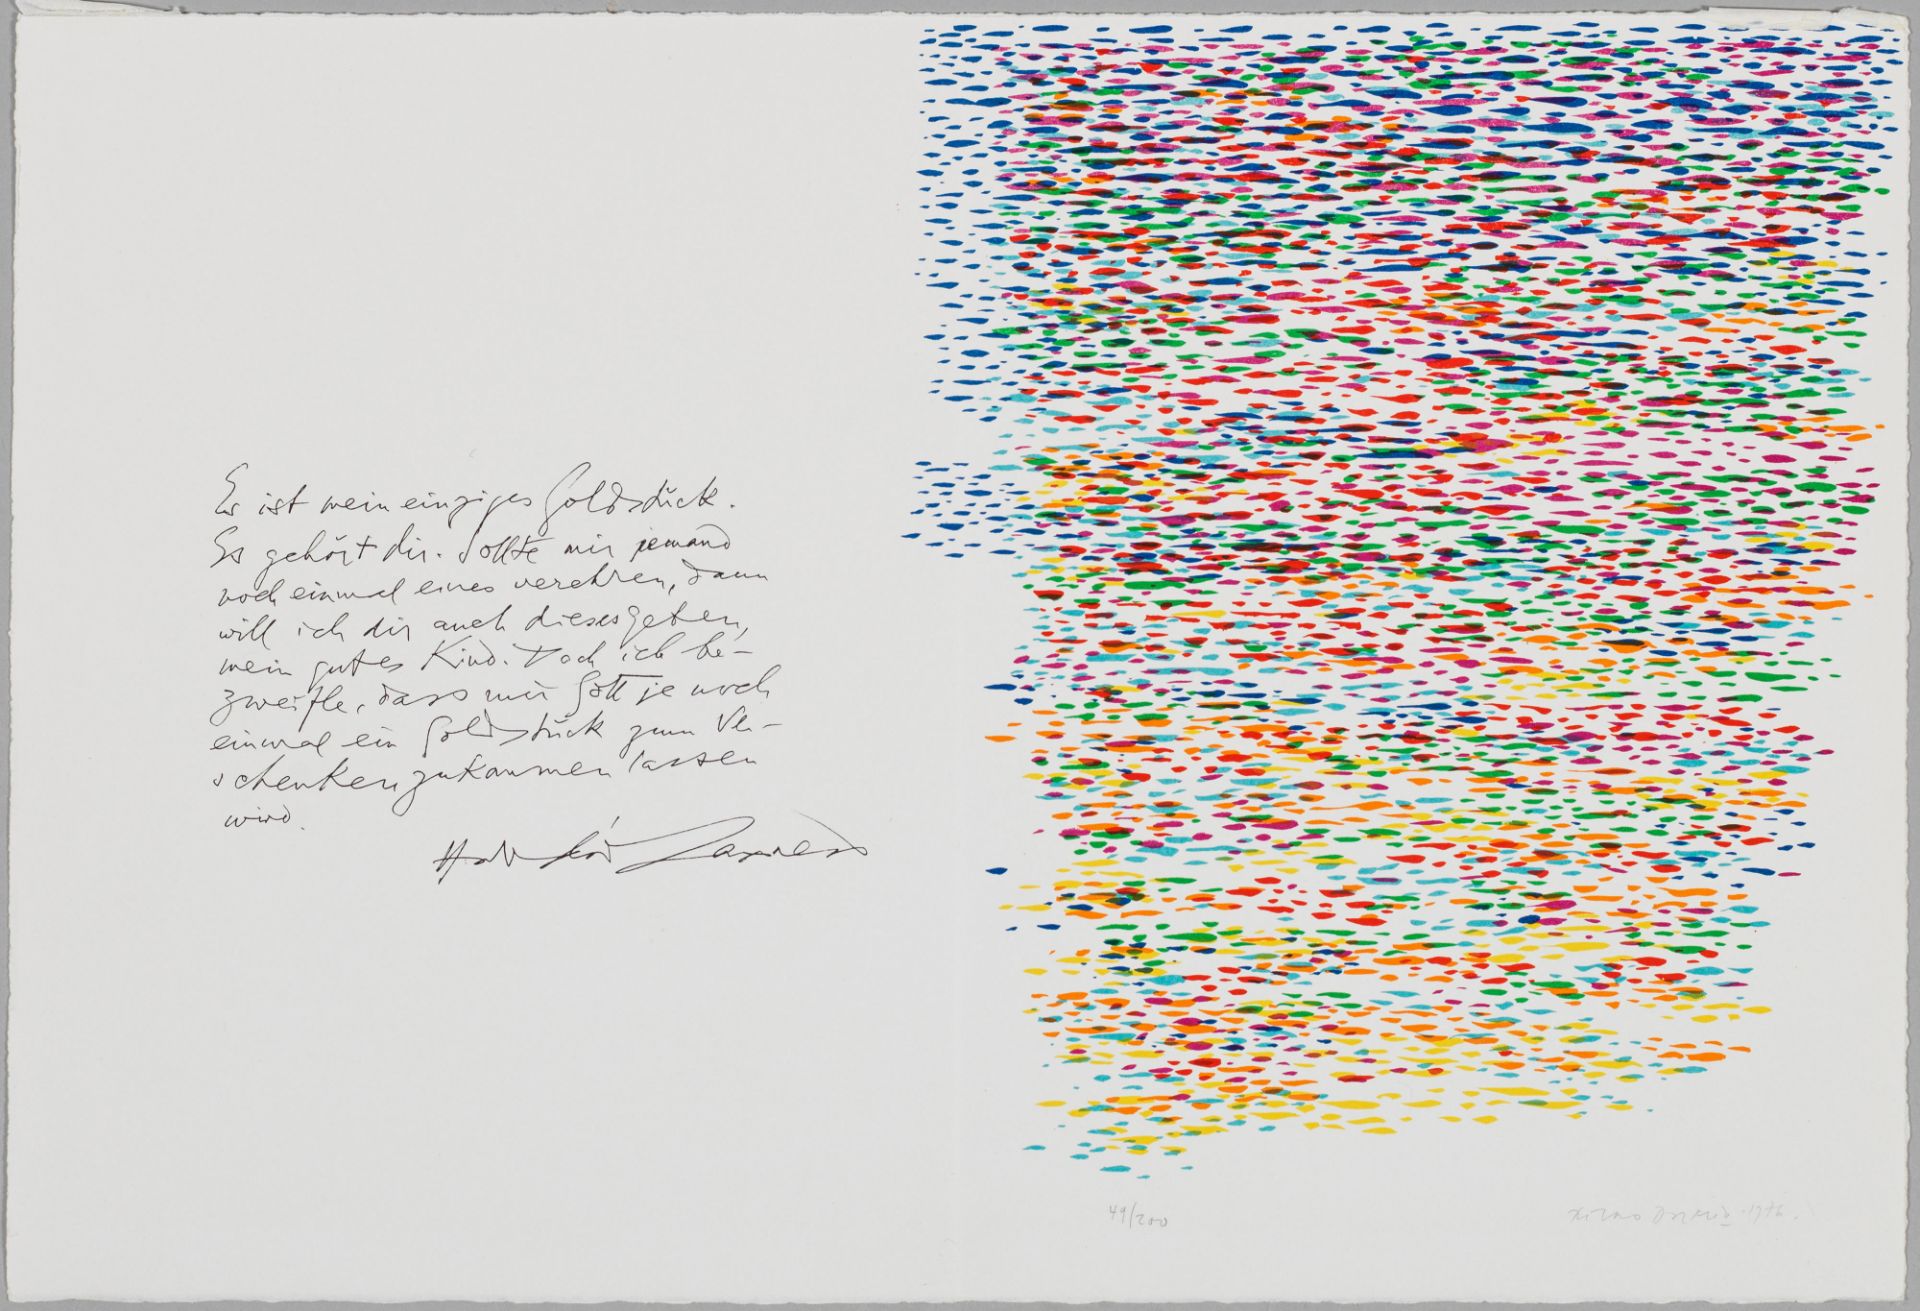 Es ist mein einziges Goldstück.
Es gehört dir. Sollte mir jemand
noch einmal eines verehren, dann
will ich dir auch dieses geben,
mein gutes Kind. Doch ich be-
zweifle, dass mir Gott je noch
einmal ein Goldstück zum Ver-
schenken zukommen lassen
wird.
49/200
Piero Dorazio 1976.